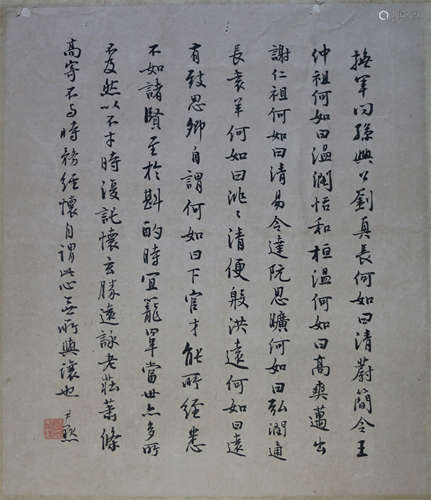 撫軍問孫興公劉真長何如曰清蔚簡令王
仲祖何如曰溫潤恬和桓溫何如曰高爽邁出
謝仁祖何如曰清易令達阮思曠何如曰弘潤通
長袁羊何如曰洮〻清便殷洪遠何如曰遠
有致思卿自謂何如曰下官才能所經悉
不如諸賢至於斟酌時宜籠罩當世亦多所
不及然以不才時復託懷玄勝遠詠老莊蕭條
高寄不與時務經懷自謂此心無所與讓也 尹默